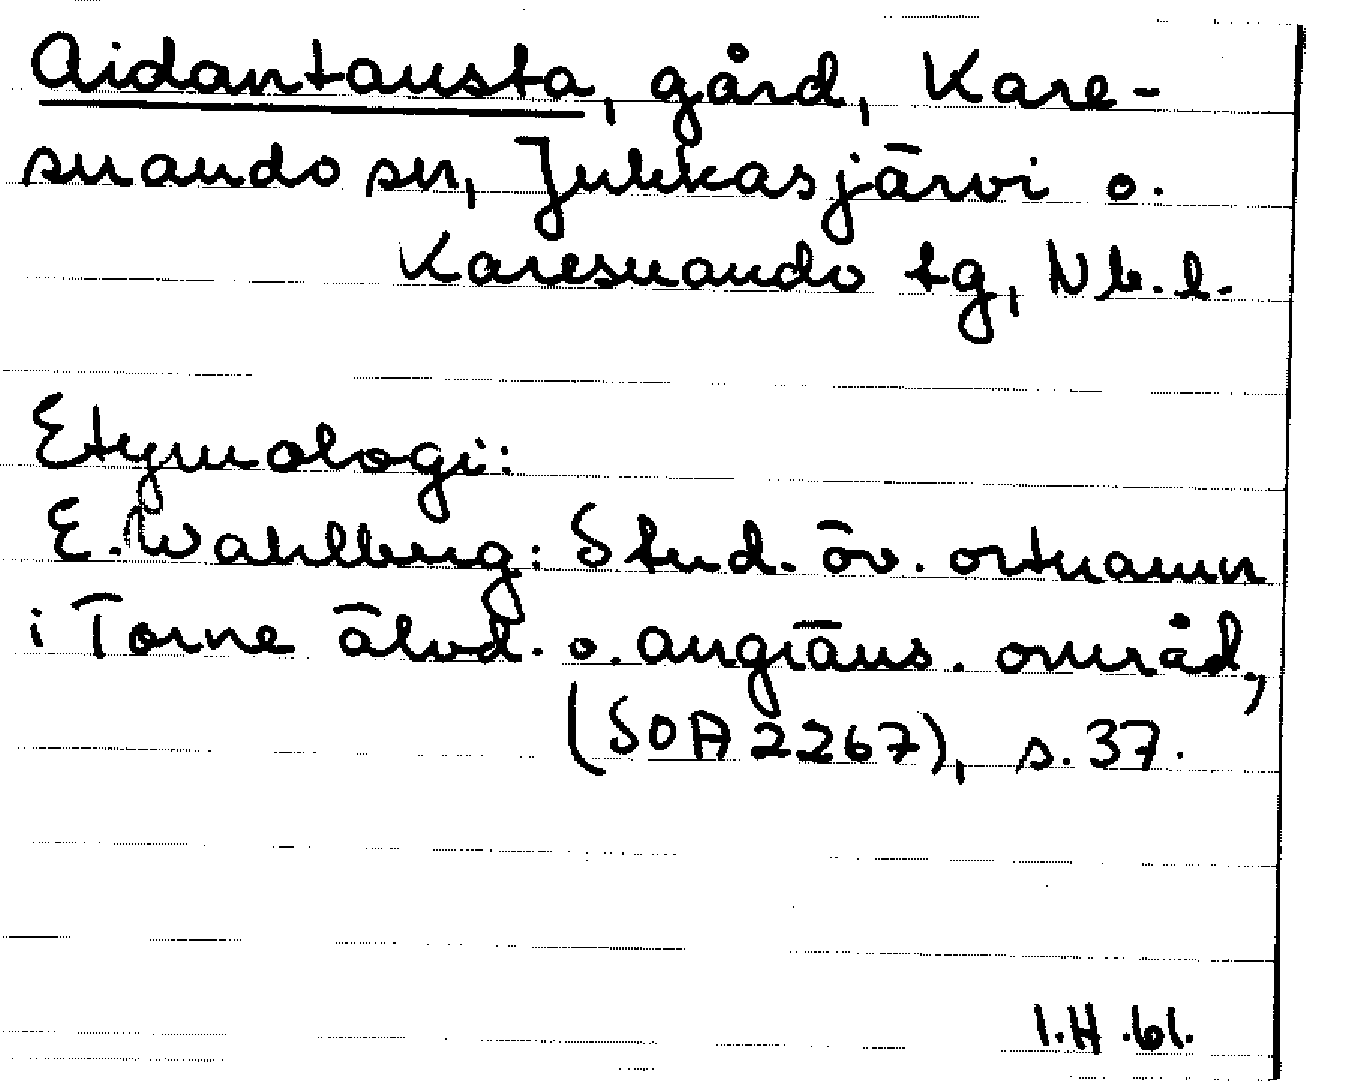 Aidantausta, gård, Kare-
suando sn, Jukkasjärvi o.
Karesuando tg, Nb. l.
Etymologi:
E. Wahlberg: Stud. öv. ortnamn
i Torne älvd. o. angräns. områd,
(SOA 2267), s. 37.
I.H .61.